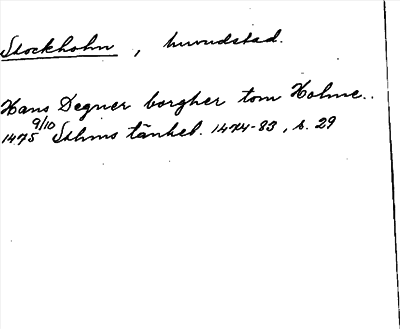 Stockholm, huvudstad.
Hans Degner borgher tom Holme..
1475 9/10 Sthms tänkeb. 1474-83, s. 29